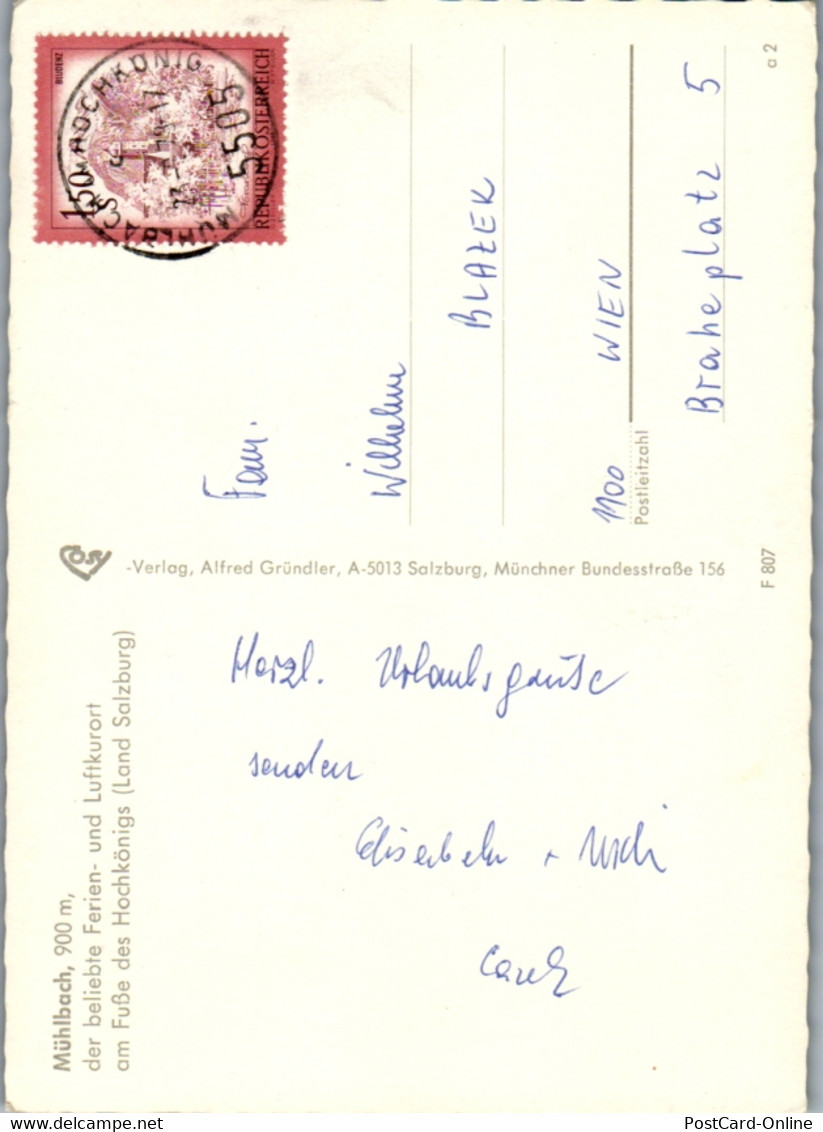 Mühlbach, 900 m,
der beliebte Ferien- und Luftkurort
am Fuße des Hochkönigs (Land Salzburg)
Herzl. Urlaubsgrüße
senden
Elisabeth +
-Verlag, Alfred Gründler, A-5013 Salzburg, Münchner Bundesstraße 156
F 807
BLUDENZ
1.50
REPUBLIK ÖSTERREICH
MÜHLBACH HOCHKÖNIG
5505
Fam.
Wilhelm
BLAZEK
1100 WIEN
Postleitzahl
Braheplatz 5
a 2
PostCard-Online